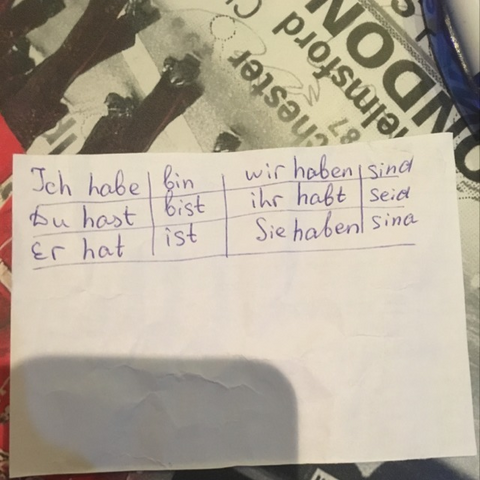 chester
elmsford
87
ONDON
Ich habe | bin | wir haben | sind
Du hast | bist | ihr habt | seid
Er hat | ist | Sie haben | sind